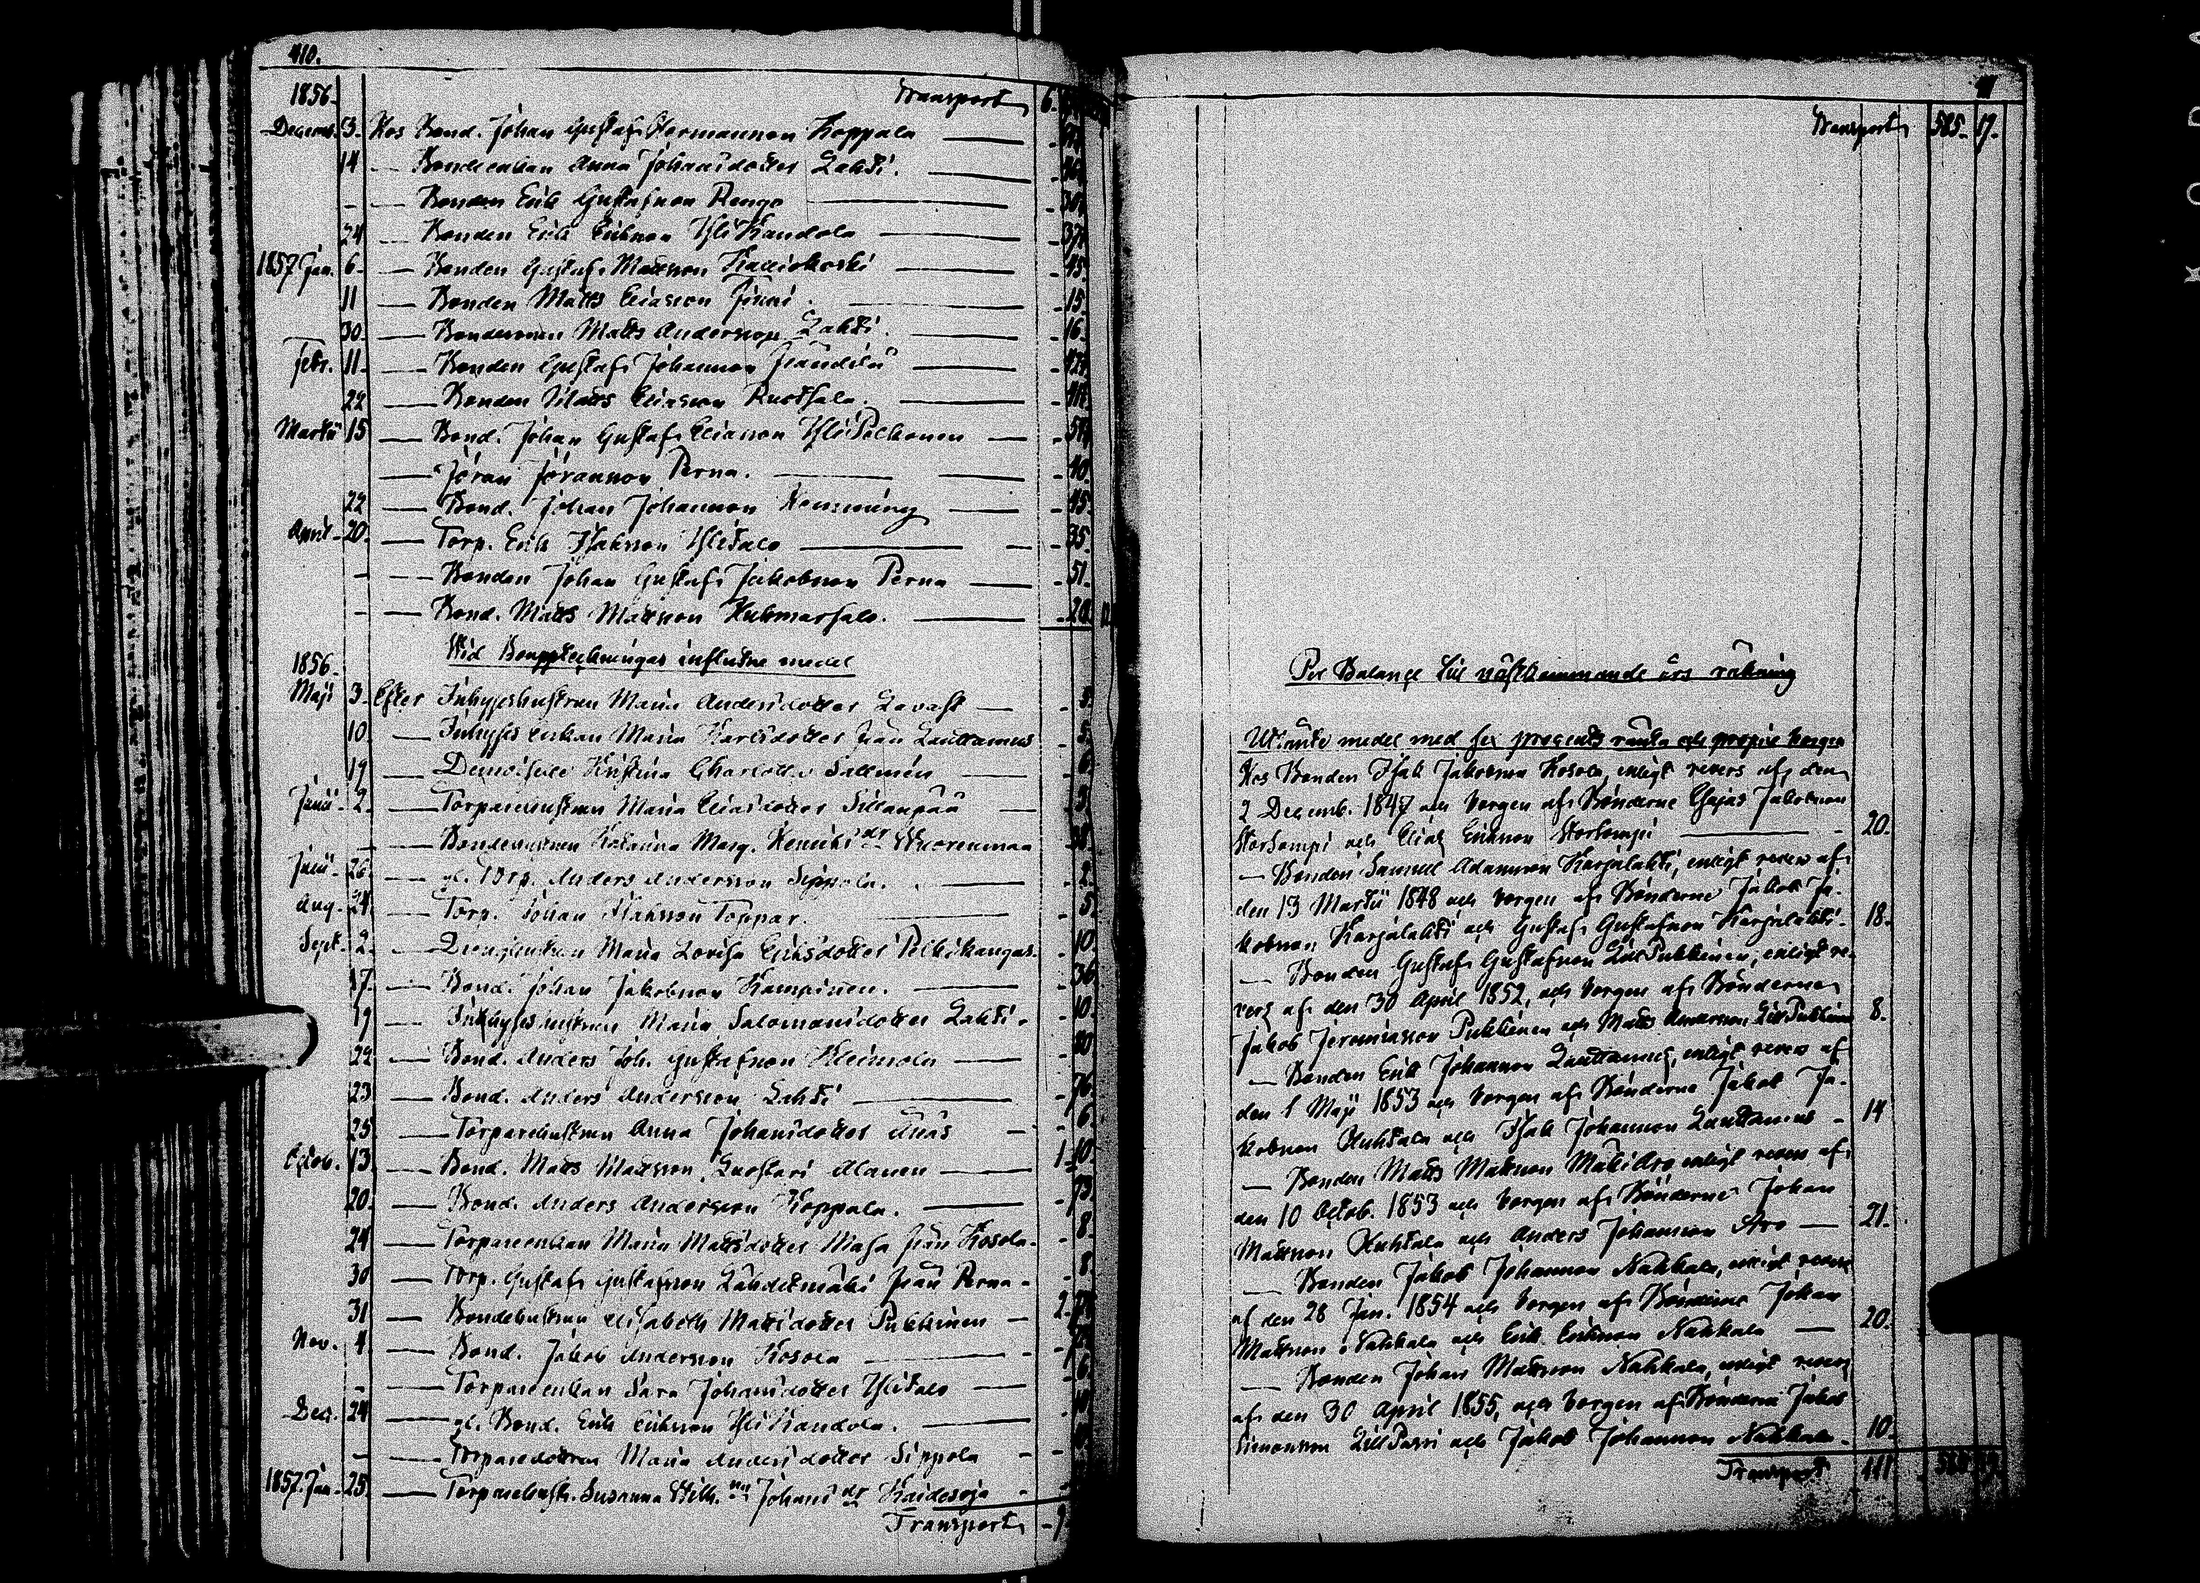 410.
1856. Transport 6.
Decemb. 3. Hos Bond. Johan Gustafs Hermansson Koppala
14 — Bondeenkan Anna Johansdotter Lahti.
- — Bonden Erik Gustafsson Rengo
24 — Bonden Erik Eriksson Yli Kandola 37.
1857 Jan. 6 — Bonden Gustaf Mattsson 45.
11 — Bonden Matts Eliasson 15.
30 — Bondesonen Matts Andersson Lahti. 16.
Febr. 11. — Bonden Gustaf Johansson
22 — Bonden Matts Eliasson Ruotsala.
Martii 15 — Bond. Johan Gustaf Eliasson Yli Pelkonen
— Jöran Jöransson Perna. 40.
22 — Bond. Johan Johansson Hemming 45.
April 20. — Torp. Erik Isaksson Ylitalo 35.
- — Bonden Johan Gustaf Jakobsson Perna 51.
- — Bond. Matts Mattsson Huhmarsalo. 20.
Vid Bouppteckningar influtne medel
1856.
Maji 3. Efter Inhyseshustrun Maria Andersdotter Lavast 3.
10. — Inhyses enkan Maria Karlsdotter från Lauttamus 5.
19 — Demoiselle Kristina Charlotta Sallmén 6.
Junii 2. — Torparehustrun Maria Eliasdotter Sillanpää 3.
- — Bondehustrun Katarina Marg. Henriksdr Wuorenmaa
Junii 26. — gl. Torp. Anders Andersson Sippola. 2.
Aug. 24. — Torp. Johan Isaksson Toppar. 5.
Sept. 2. — Dränghustrun Maria Lovisa Eriksdotter Pelkikangas. 10.
17. — Bond. Johan Jakobsson Kampinen. 36.
19 — Inhyseshustrun Maria Salomonsdotter Lahti. 10.
22 — Bond. Anders Joh. Gustafsson Kleimola
23 — Bond. Anders Andersson Lahti 76.
25 — Torparehustrun Anna Johansdotter 6.
Octob. 13 — Bond. Matts Mattsson Luostari Alanen 1. 10.
20. — Bond. Anders Andersson Koppala. 73.
24 — Torpareenkan Maria Mattsdotter Masa från Kosola. 8.
30 — Torp. Gustaf Gustafsson Lähdetmäki från Perna 8.
31 — Bondehustrun Elisabeth Mattsdotter Pukkinen 2.
Nov. 4. — Bond. Jakob Andersson Kosola
- — Torpareenkan Sara Johansdotter Ylitalo 6.
Dec. 24 — gl. Bond. Erik Eriksson Yli Kandola.
- — Torparedottren Maria Andersdotter Sippola
1857. Jan. 25. — Torparehustr. Susanna Wilh.na Johansdr Kaidesoja
Transport
Transport 585. 17.
Per Balance till nästkommande års räkning
Utlånte medel med sex procents ränta och proprie borgen
Hos Bonden Isak Jakobsson Kosola, enligt revers af den
2 Decemb. 1847 och borgen af Bönderne Esajas Jakobsson
Storsempi och Elias Eriksson Storsempi 20.
— Bonden Samuel Adamsson Karjalahti, enligt revers af
den 13 Martii 1848 och borgen af Bönderne Jakob Ja-
kobsson Karjalahti och Gustaf Gustafsson Karjalahti. 18.
— Bonden Gustaf Gustafsson Lill Pukkinen, enligt re-
vers af den 30 April 1852, och borgen af Bönderne
Jakob Jeremiasson Pukkinen och Matts Andersson Lill Pukkinen 8.
— Bonden Erik Johansson Lauttamus, enligt revers af
den 1 Maji 1853 och borgen af Bönderne Jakob Ja-
kobsson Huhtala och Isak Johansson Lauttamus 14
— Bonden Matts Mattsson Mäki Aro enligt revers af
den 10 Octob. 1853 och borgen af Bönderne Johan
Mattsson Huhtala och Anders Johansson Aro 21.
— Bonden Jakob Johansson Nahkala, enligt revers
af den 28 Jan. 1854 och borgen af Bönderne Johan
Mattsson Nahkala och Erik Eriksson Nahkala 20.
— Bonden Johan Mattsson Nahkala, enligt revers
af den 30 April 1855, och borgen af Bönderne Jakob
Simonsson Lill Passi och Jakob Johansson Nahkala. 10.
Transport 111.